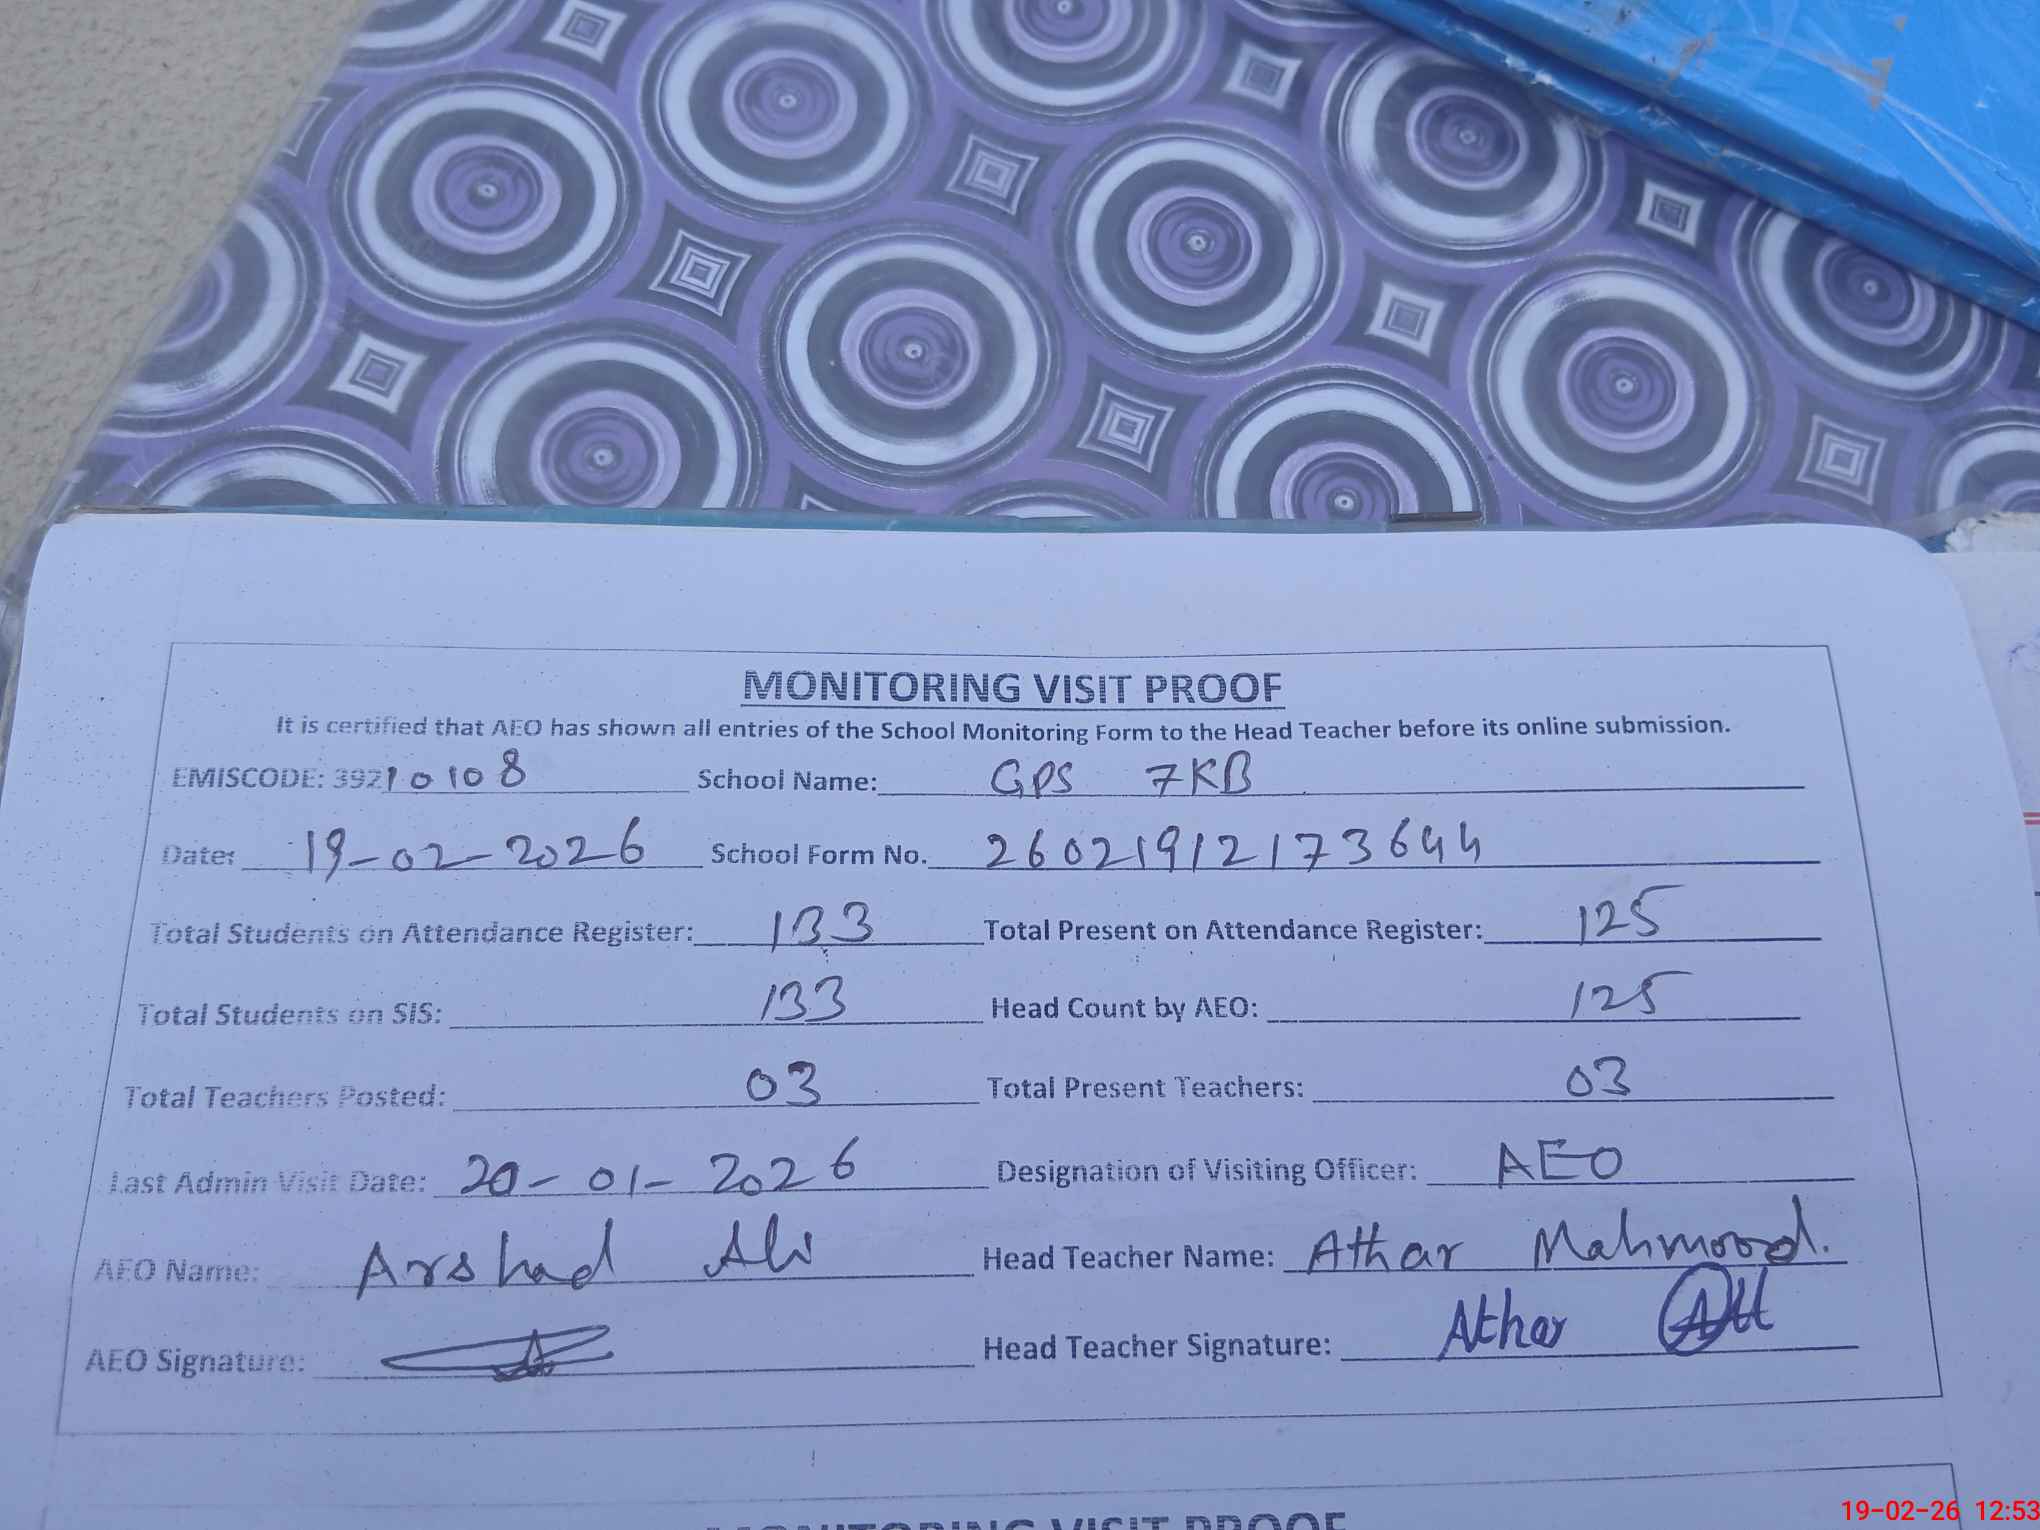 MONITORING VISIT PROOF
It is certified that AEO has shown all entries of the School Monitoring Form to the Head Teacher before its online submission.
EMISCODE: 39210108 School Name: GPS 7KB
Date: 19-02-2026 School Form No. 26021912173644
Total Students on Attendance Register: 133 Total Present on Attendance Register: 125
Total Students on SIS: 133 Head Count by AEO: 125
Total Teachers Posted: 03 Total Present Teachers: 03
Last Admin Visit Date: 20-01-2026 Designation of Visiting Officer: AEO
AEO Name: Arshad Ali Head Teacher Name: Athar Mahmood.
AEO Signature: Head Teacher Signature: Athar
MONITORING VISIT PROOF
19-02-26 12:53